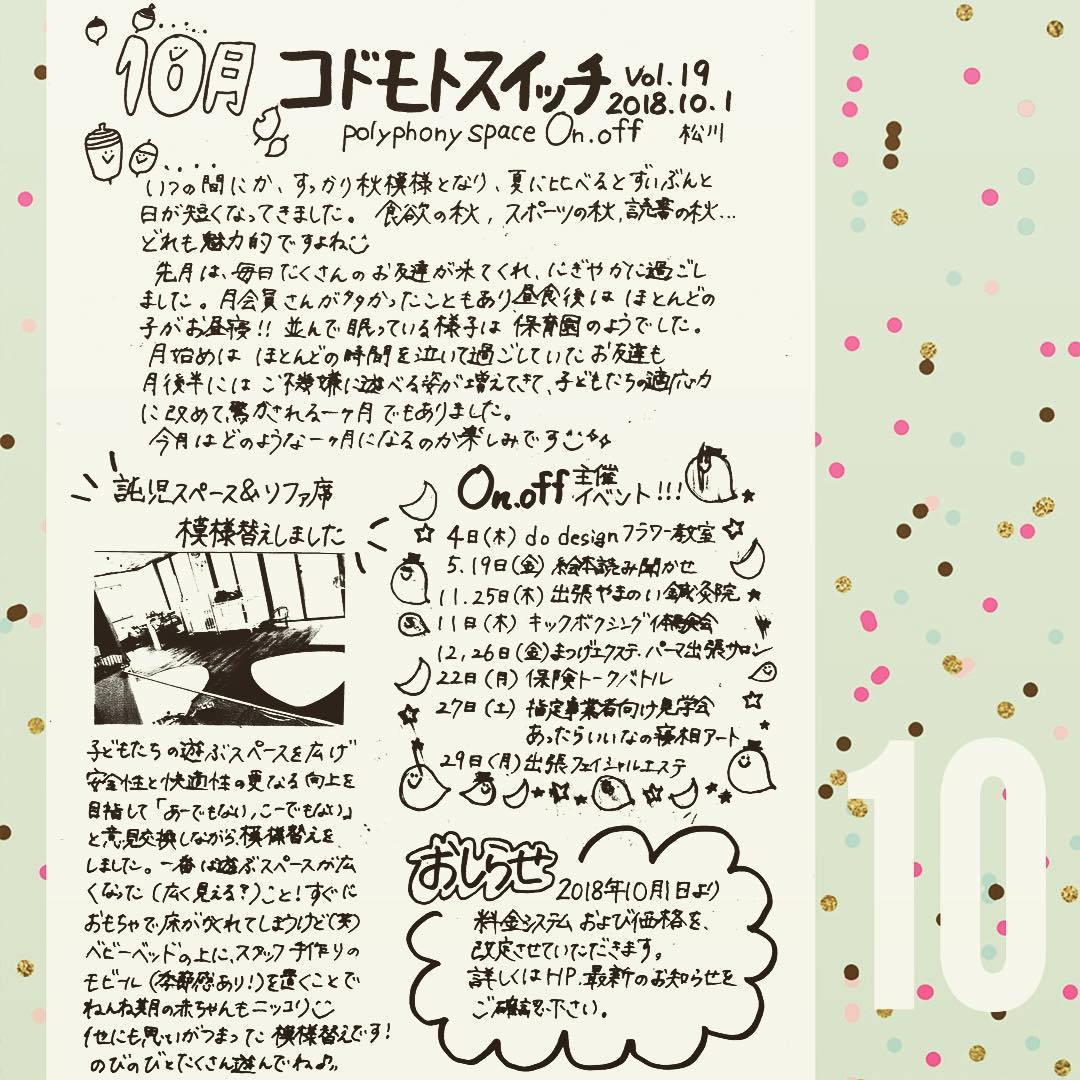 10月 コドモトスイッチ Vol.19
2018.10.1
polyphony space On.off 松川
いつの間にか、すっかり秋模様となり、夏に比べるとずいぶんと
日が短くなってきました。 食欲の秋, スポーツの秋,読書の秋…
どれも魅力的ですよね
先月は、毎日たくさんのお友達が来てくれ、にぎやかに過ごし
ました。月会員さんが多かったこともあり昼食後は ほとんどの
子がお昼寝!! 並んで眠っている様子は 保育園のようでした。
月始めは ほとんどの時間を泣いて過ごしていた お友達も
月後半には ご機嫌に遊べる姿が増えてきて、子どもたちの適応力
に改めて驚かされる一ヶ月でもありました。
今月はどのような一ヶ月になるのか楽しみです
託児スペース&ソファ席
模様替えしました
子どもたちの遊ぶスペースを広げ
安全性と快適性の更なる向上を
目指して「あーでもない,こーでもない」
と意見交換しながら、模様替えを
しました。一番は遊ぶスペースが広
くなった(広く見える?)こと!すぐに
おもちゃで床が欠れてしまうけど(笑)
ベビーベッドの上に、スタッフ手作りの
モビール(季節感あり!)を置くことで
ねんね期の赤ちゃんもニッコリ
他にも思いがつまった模様替えです!
のびのびとたくさん遊んでね♪
On.off 主催
イベント!!!
4日(木) do design フラワー教室
5.19日(金) 絵本読み聞かせ
11.25日(木) 出張やまのい鍼灸院
11日(木) キックボクシング体験会
12,26日(金)まつげエクステ、パーマ出張サロン
22日(月) 保険トークバトル
27日(土) 指定事業者向け見学会
あったらいいなの寝相アート
29日(月)出張フェイシャルエステ
おしらせ
2018年10月1日より
料金システム および価格を、
改定させていただきます。
詳しくはHP.最新のお知らせを
ご確認下さい。
10